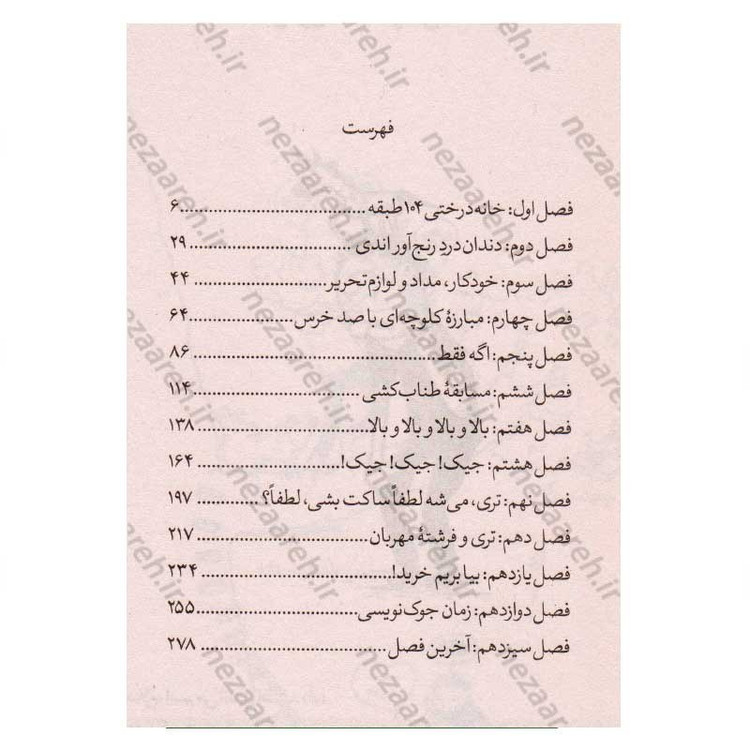 فهرست
فصل اول: خانه درختی ۱۰۴ طبقه ........................... ۶
فصل دوم: دندان دردِ رنج‌آور اندی ........................... ۲۹
فصل سوم: خودکار، مداد و لوازم تحریر ........................... ۴۴
فصل چهارم: مبارزهٔ کلوچه‌ای با صد خرس ........................... ۶۴
فصل پنجم: اگه فقط ........................... ۸۶
فصل ششم: مسابقهٔ طناب‌کشی ........................... ۱۱۴
فصل هفتم: بالا و بالا و بالا و بالا ........................... ۱۳۸
فصل هشتم: جیک! جیک! جیک! ........................... ۱۶۴
فصل نهم: تری، می‌شه لطفاً ساکت بشی، لطفاً؟ ........................... ۱۹۷
فصل دهم: تری و فرشتهٔ مهربان ........................... ۲۱۷
فصل یازدهم: بیا بریم خرید! ........................... ۲۳۴
فصل دوازدهم: زمان جوک‌نویسی ........................... ۲۵۵
فصل سیزدهم: آخرین فصل ........................... ۲۷۸
nezaareh.ir